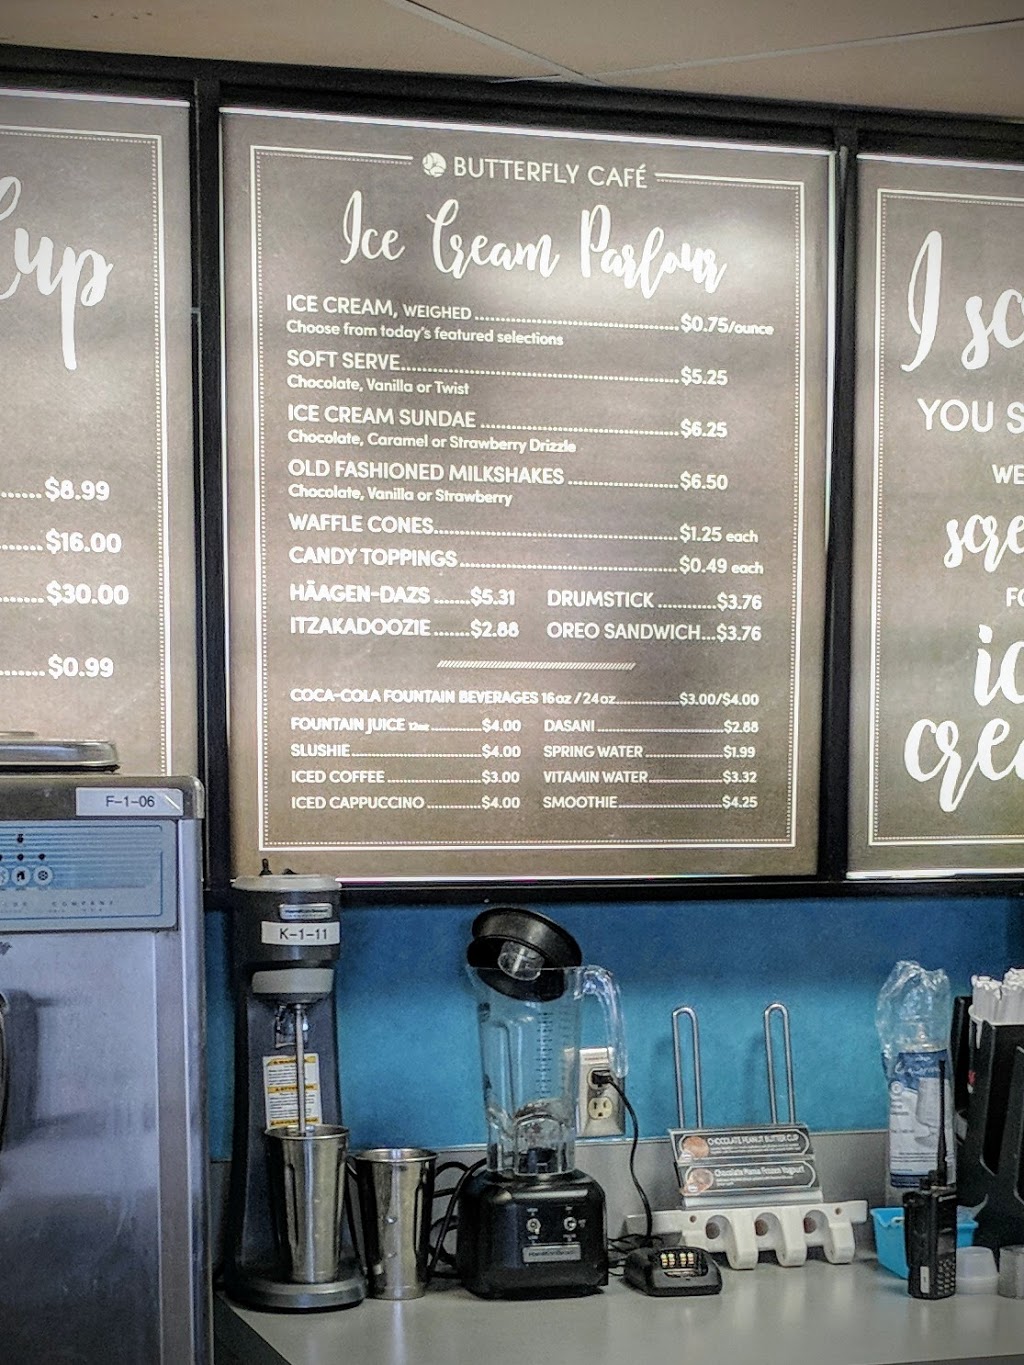 Cup
$8.99
$16.00
$30.00
$0.99
BUTTERFLY CAFÉ
Ice Cream Parlour
ICE CREAM, WEIGHED $0.75/ounce
Choose from today's featured selections
SOFT SERVE $5.25
Chocolate, Vanilla or Twist
ICE CREAM SUNDAE $6.25
Chocolate, Caramel or Strawberry Drizzle
OLD FASHIONED MILKSHAKES $6.50
Chocolate, Vanilla or Strawberry
WAFFLE CONES $1.25 each
CANDY TOPPINGS $0.49 each
HÄAGEN-DAZS $5.31 DRUMSTICK $3.76
ITZAKADOOZIE $2.88 OREO SANDWICH $3.76
COCA-COLA FOUNTAIN BEVERAGES 16oz / 24oz $3.00/$4.00
FOUNTAIN JUICE 12oz $4.00 DASANI $2.88
SLUSHIE $4.00 SPRING WATER $1.99
ICED COFFEE $3.00 VITAMIN WATER $3.32
ICED CAPPUCCINO $4.00 SMOOTHIE $4.25
I sc
YOU S
WE
scre
FO
ic
crea
F-1-06
COMPANY
K-1-11
CHOCOLATE PEANUT BUTTER CUP